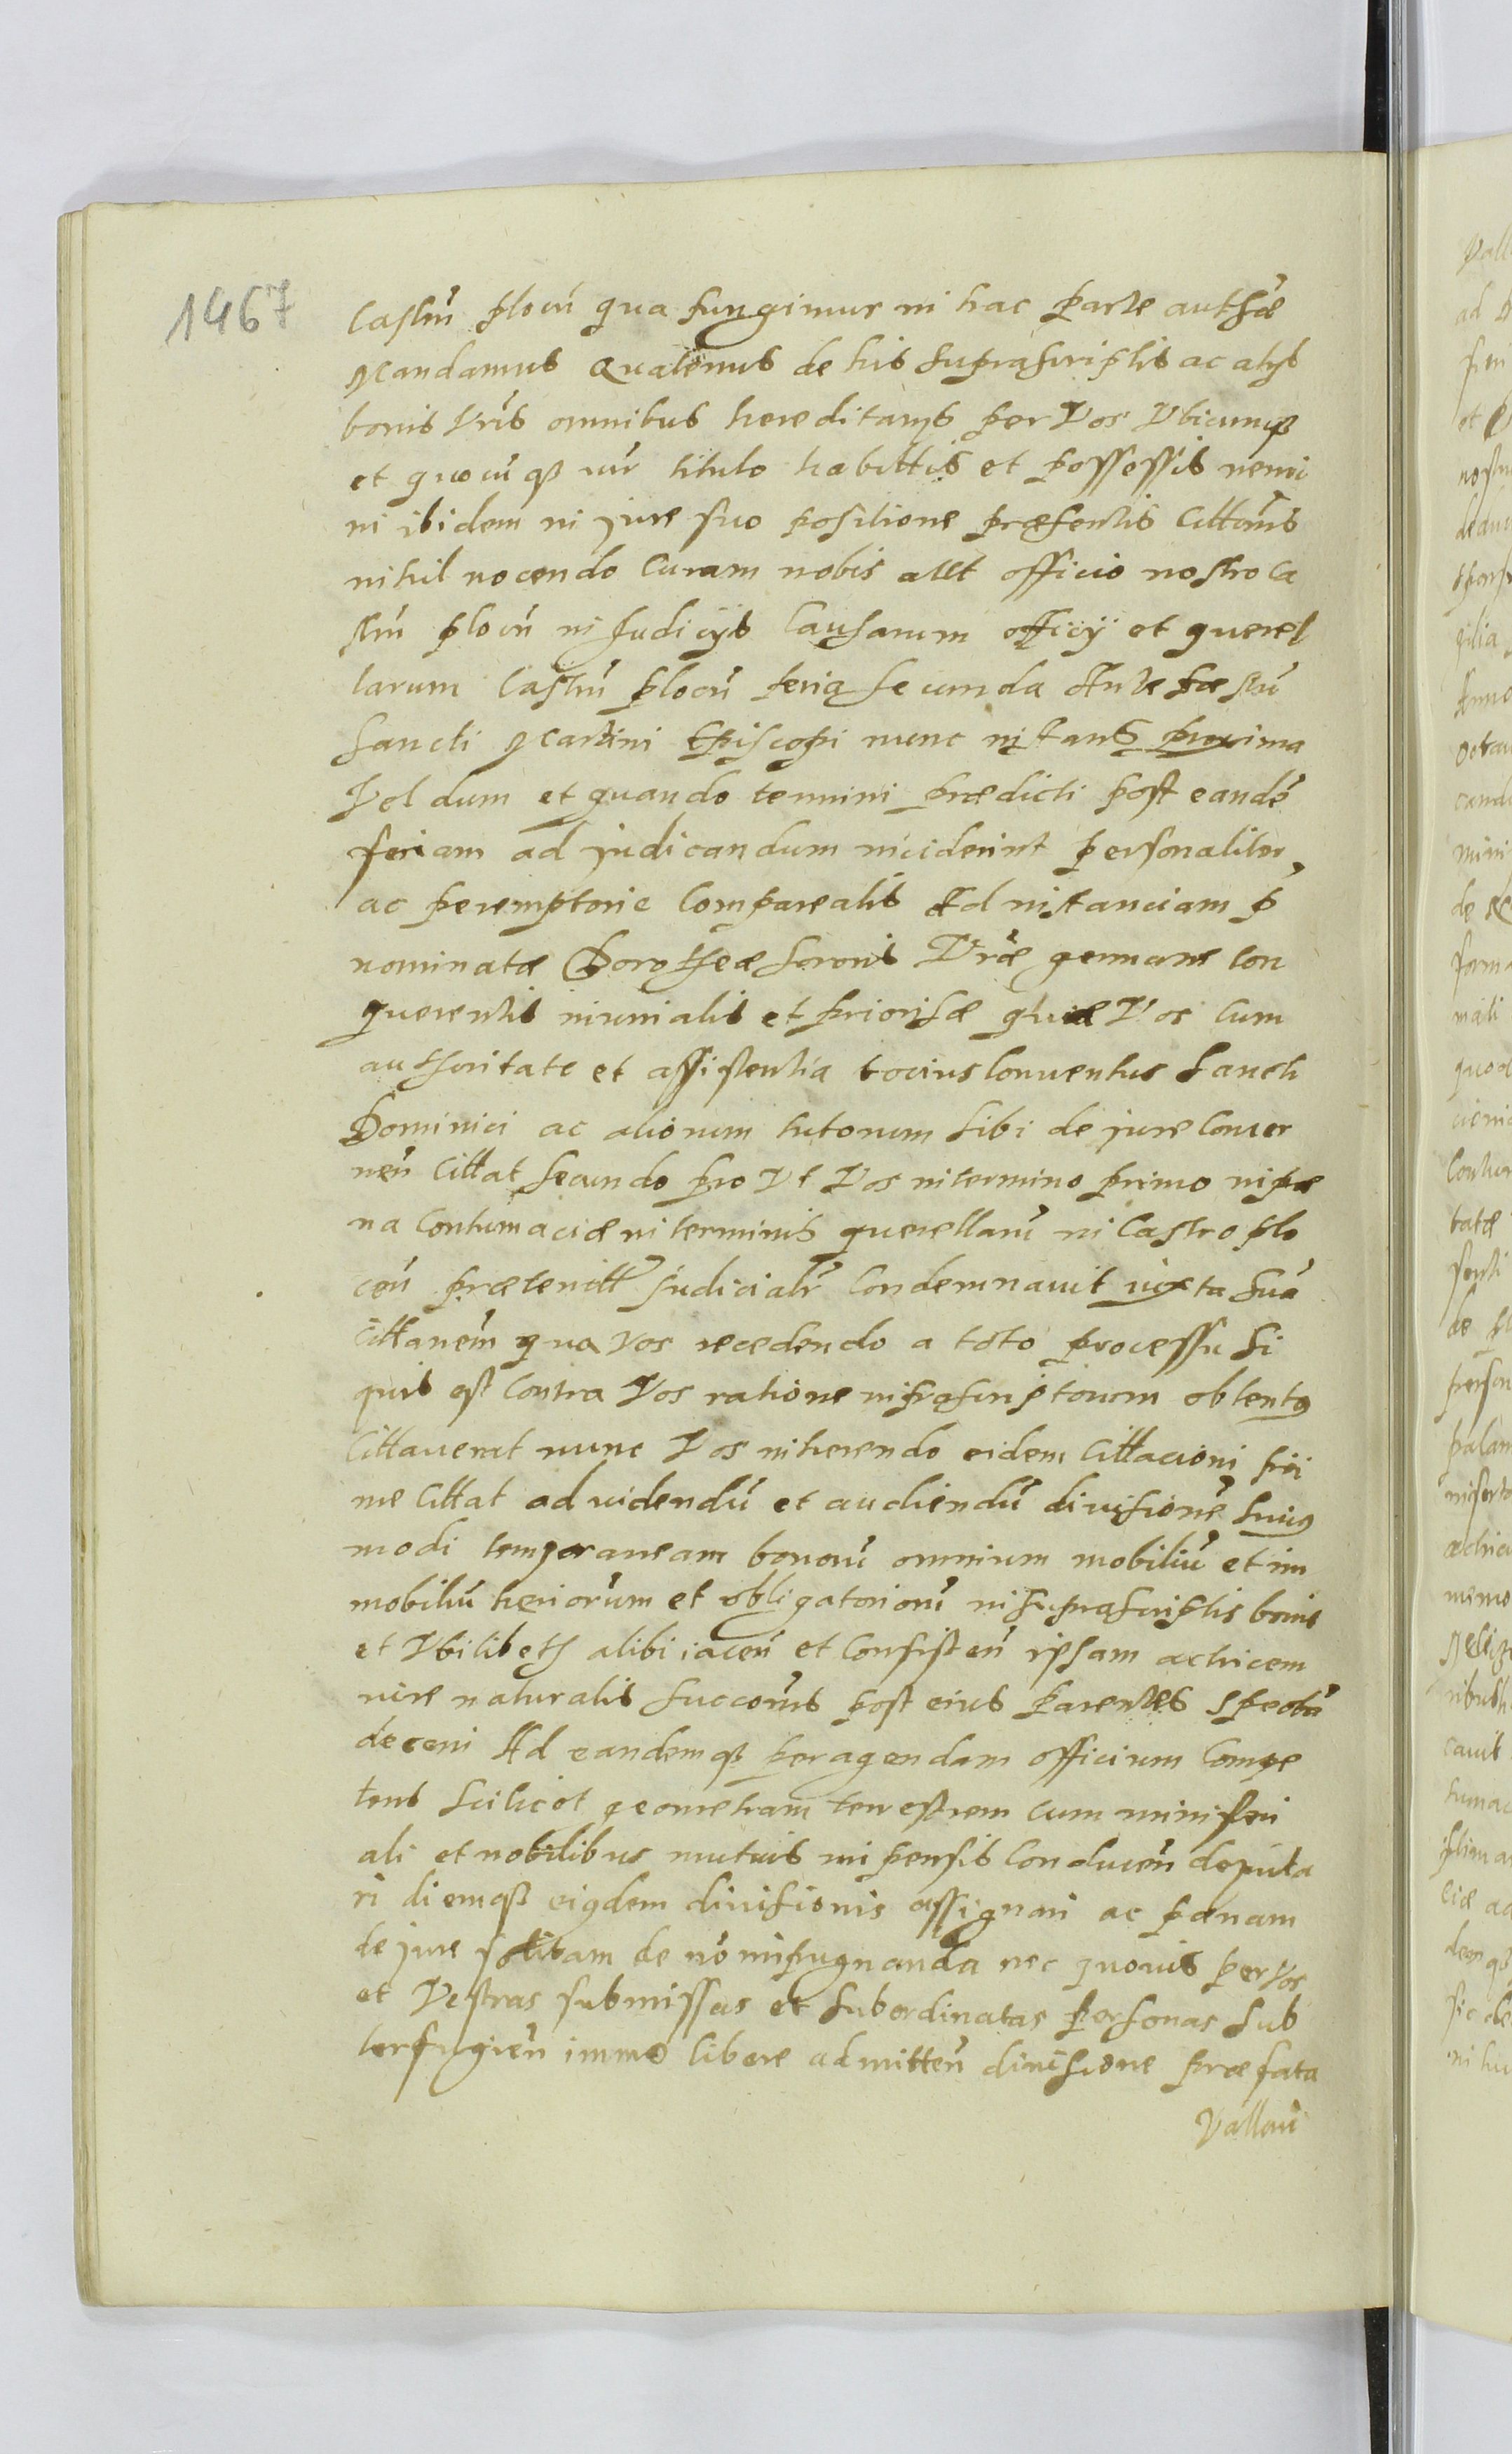 1467
Castrū plocū qua fungimur in hac parte authæ
Mandamus Quatenus de his suprascriptis ac alijs
bonis Vr̄is omnibus hereditarijs per Vos Vbicumqꝫ
et quocūqꝫ iur titulo habittis et possessis nemi
ni ibidem in jure suo positione præsentis Cittōnis
nihil nocendo Curam nobis allt officio nostro Ca
strū plocū in Judicijs Causarum officij et querel
larum Castrū plocū feria secunda Ante fæstū
Sancti Martini Episcopi nunc instanti proxima
Vel dum et quando termini prædicti post eandē
feriam ad judicandum inciderint personaliter
ac peremptorie Compareatis Ad instanciam p̄
nominatæ Dorotheæ Sororis Vr̄æ germanæ con
querentis iniunialis et priorisæ quæ Vos cum
authoritate et assistentia tocius Conuentus Sancti
Dominici ac aliorum tutorum sibi de jure Conuer
nēn Cittat secundo pro Vt Vos in termino primo in pæ
na Contumaciæ in terminis querellarū in Castro plo
cēn præteritt Judicialr̄ Condemnauit iuxta suā
cittanēm qua vos recedendo a toto processu si
quis est Contra Vos ratione infrascriptorum obtentꝯ
Cittauerat nunc Vos inherendo eidem Cittacioni pri
me Cittat ad videndū et audiendū diuisionē huiꝯ
modi temporaneam bonorū omnium mobiliū et im
mobiliū heriorum et obligatoriorū in suprascriptis bonis
et Vbilibeth alibi iacēn et Consistēn ipsam actricem
iure naturalis succōnis post eius Parentes spectā
decerni Ad eandemqꝫ peragendam officium Compe
tens scilicet geometram terrestrem cum ministeri
ali et nobilibus mutuis impensis Conducēn deputa
ri diemqꝫ eiꝯdem diuisionis assignari ac pænam
de jure solitam de nō impugnanda nec quouis per vos
et Vestras submissas et subordinatas personas sub
terfugiēn immo libere admittēn diuisione præfata
Vallaū